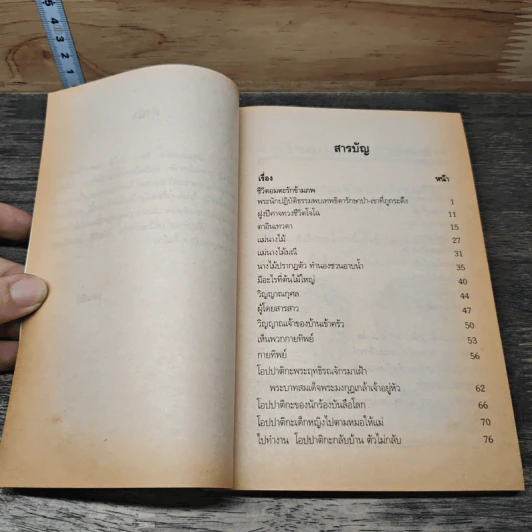 5 4 3 2 1
สารบัญ
เรื่อง หน้า
ชีวิตอมตะรักข้ามภพ
พระนักปฏิบัติธรรมพบเทพธิดารักษาป่า-เขาที่ภูกระดึง 1
ฝูงปีศาจทวงชีวิตโจโฉ 11
ตาอินเทวดา 15
แม่นางไม้ 27
แม่นางไม้มณี 31
นางไม้ปรากฏตัว ทำนองชวนอาบน้ำ 35
มีอะไรที่ต้นไม้ใหญ่ 40
วิญญาณกุศล 44
ผู้โดยสารสาว 47
วิญญาณเจ้าของบ้านเข้าครัว 50
เห็นพวกกายทิพย์ 53
กายทิพย์ 56
โอปปาติกะพระฤทธิรณจักรมาเฝ้า
พระบาทสมเด็จพระมงกุฎเกล้าเจ้าอยู่หัว 62
โอปปาติกะของนักร้องบันลือโลก 66
โอปปาติกะเด็กหญิงไปตามหมอให้แม่ 70
ไปทำงาน โอปปาติกะกลับบ้าน ตัวไม่กลับ 76